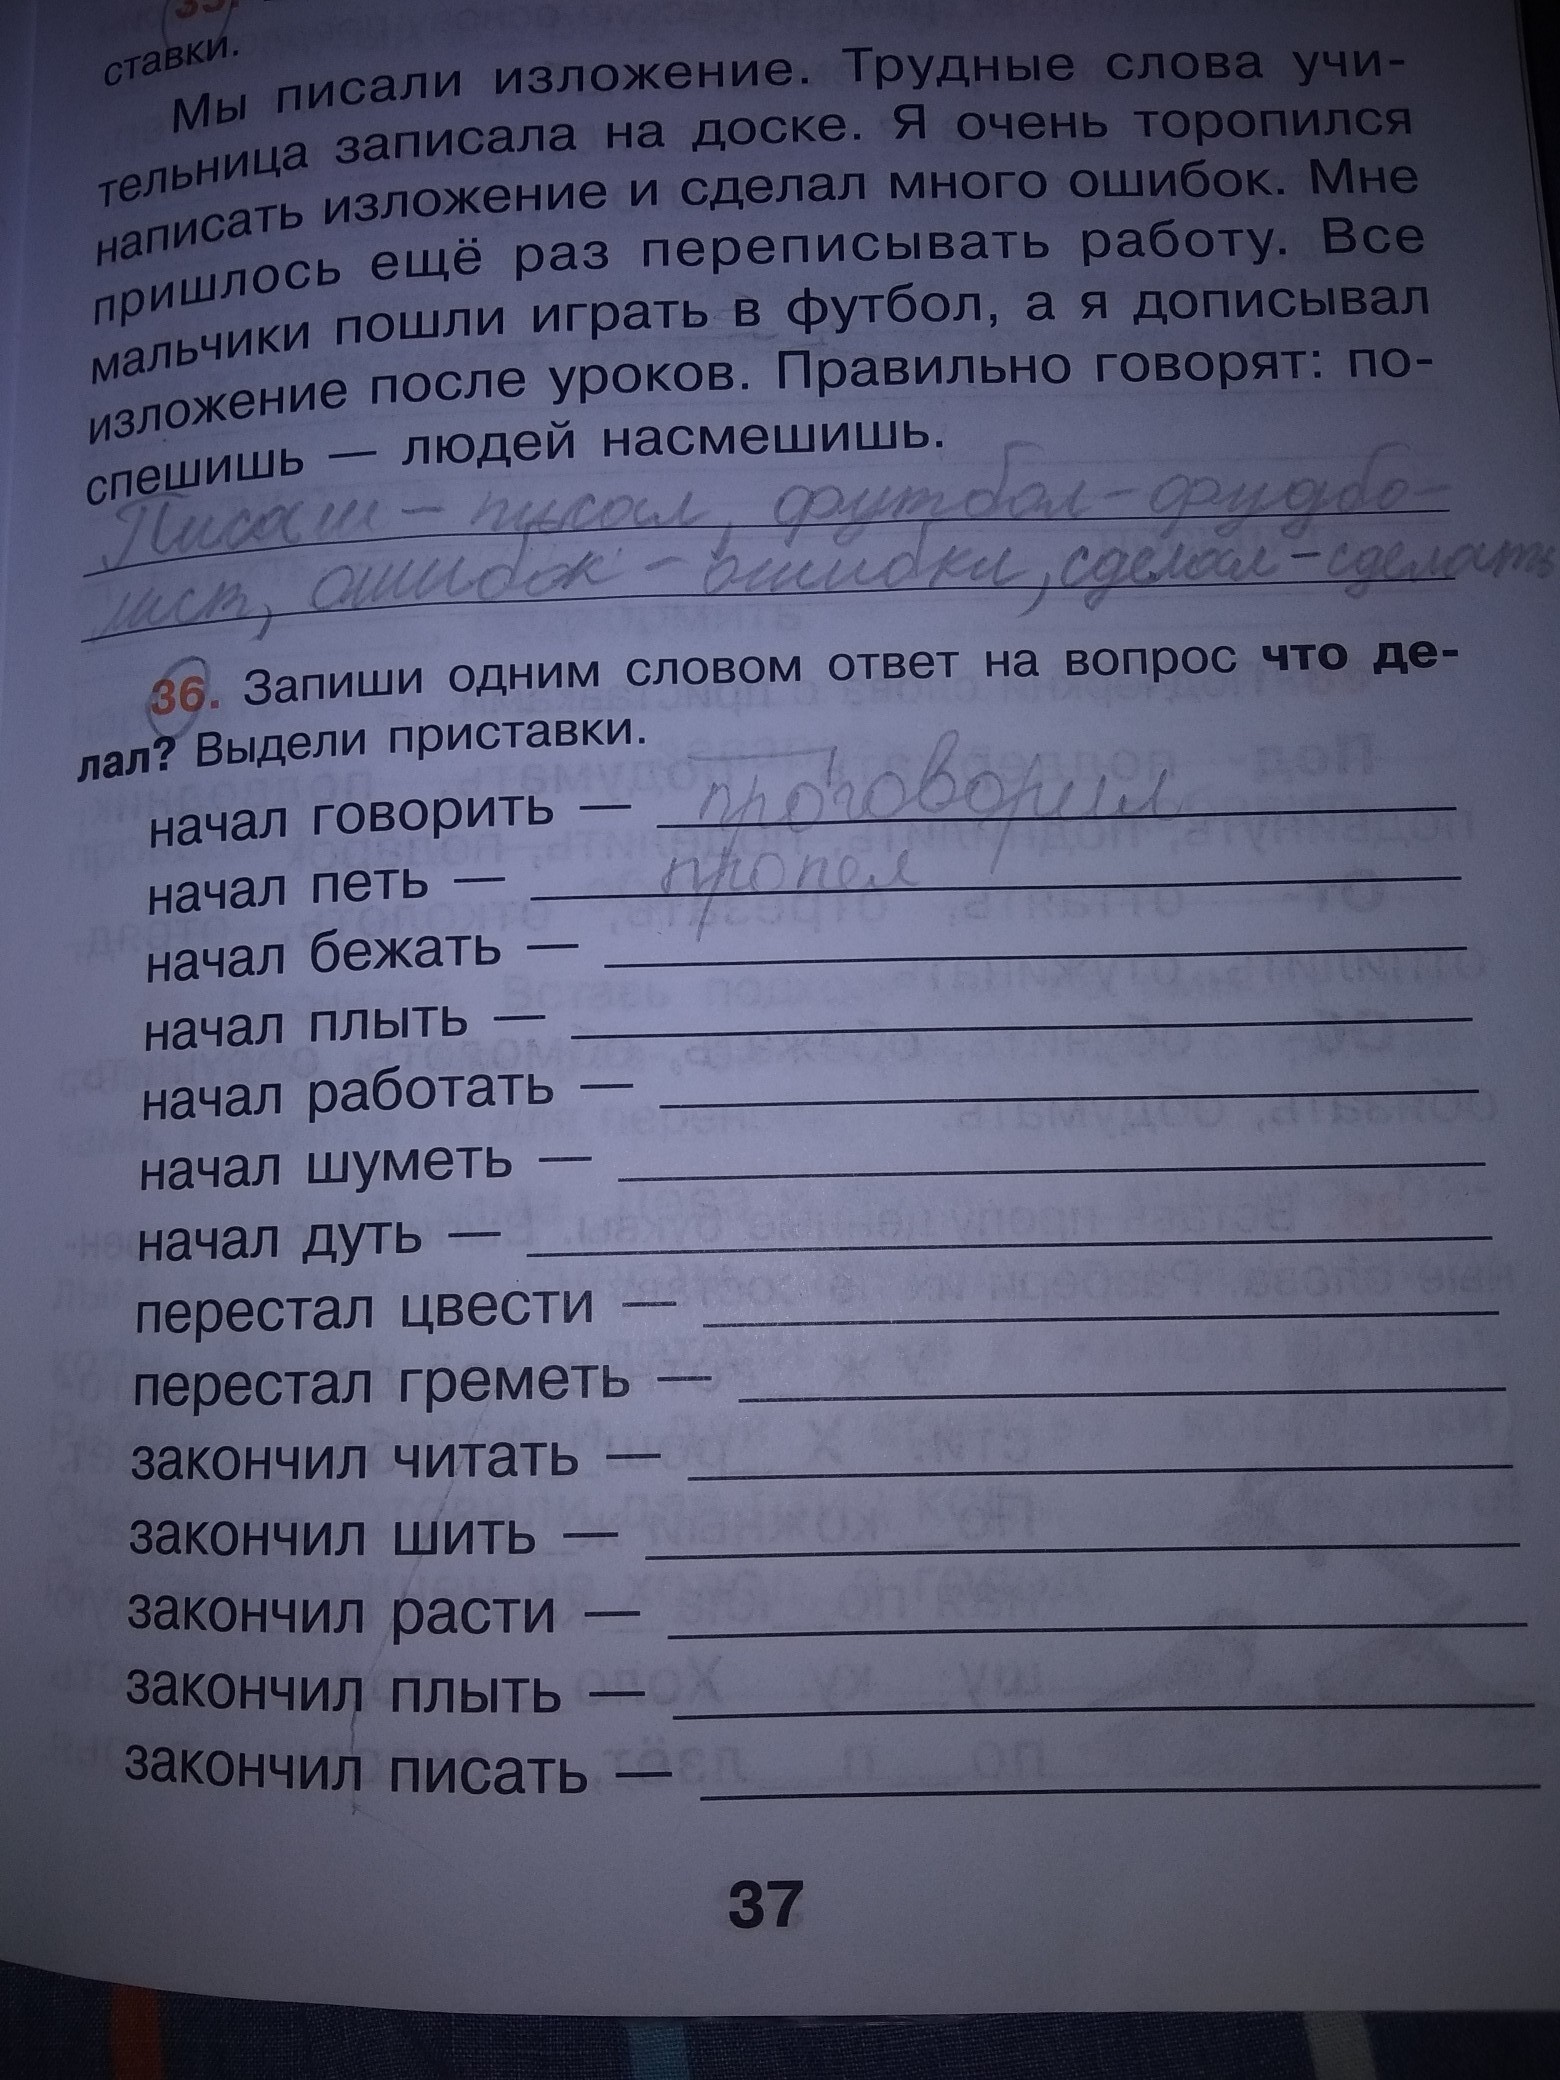 35.
ставки.
Мы писали изложение. Трудные слова учи-
тельница записала на доске. Я очень торопился
написать изложение и сделал много ошибок. Мне
пришлось ещё раз переписывать работу. Все
мальчики пошли играть в футбол, а я дописывал
изложение после уроков. Правильно говорят: по-
спешишь — людей насмешишь.
Писали – писал, футбол – фудбо-
лист, ошибок – ошибки, сделал – сделать
36. Запиши одним словом ответ на вопрос что де-
лал? Выдели приставки.
начал говорить — проговорил
начал петь — пропел
начал бежать —
начал плыть —
начал работать —
начал шуметь —
начал дуть —
перестал цвести —
перестал греметь —
закончил читать —
закончил шить —
закончил расти —
закончил плыть —
закончил писать —
37